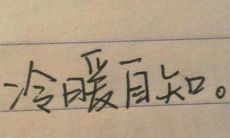 冷暖自知。